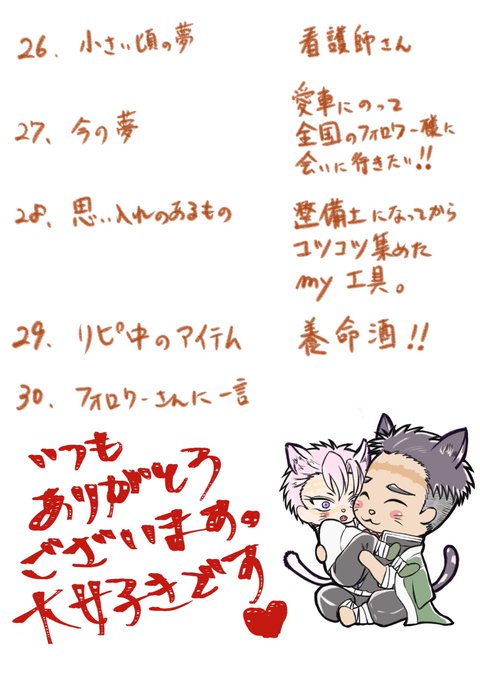 26、小さい頃の夢 看護師さん
27、今の夢 愛車にのって
全国のフォロワー様に
会いに行きたい!!
28、思い入れのあるもの 整備士になってから
コツコツ集めた
my 工具。
29、リピ中のアイテム 養命酒!!
30、フォロワーさんに一言
いつも
ありがとう
ございます。
大好きです♥